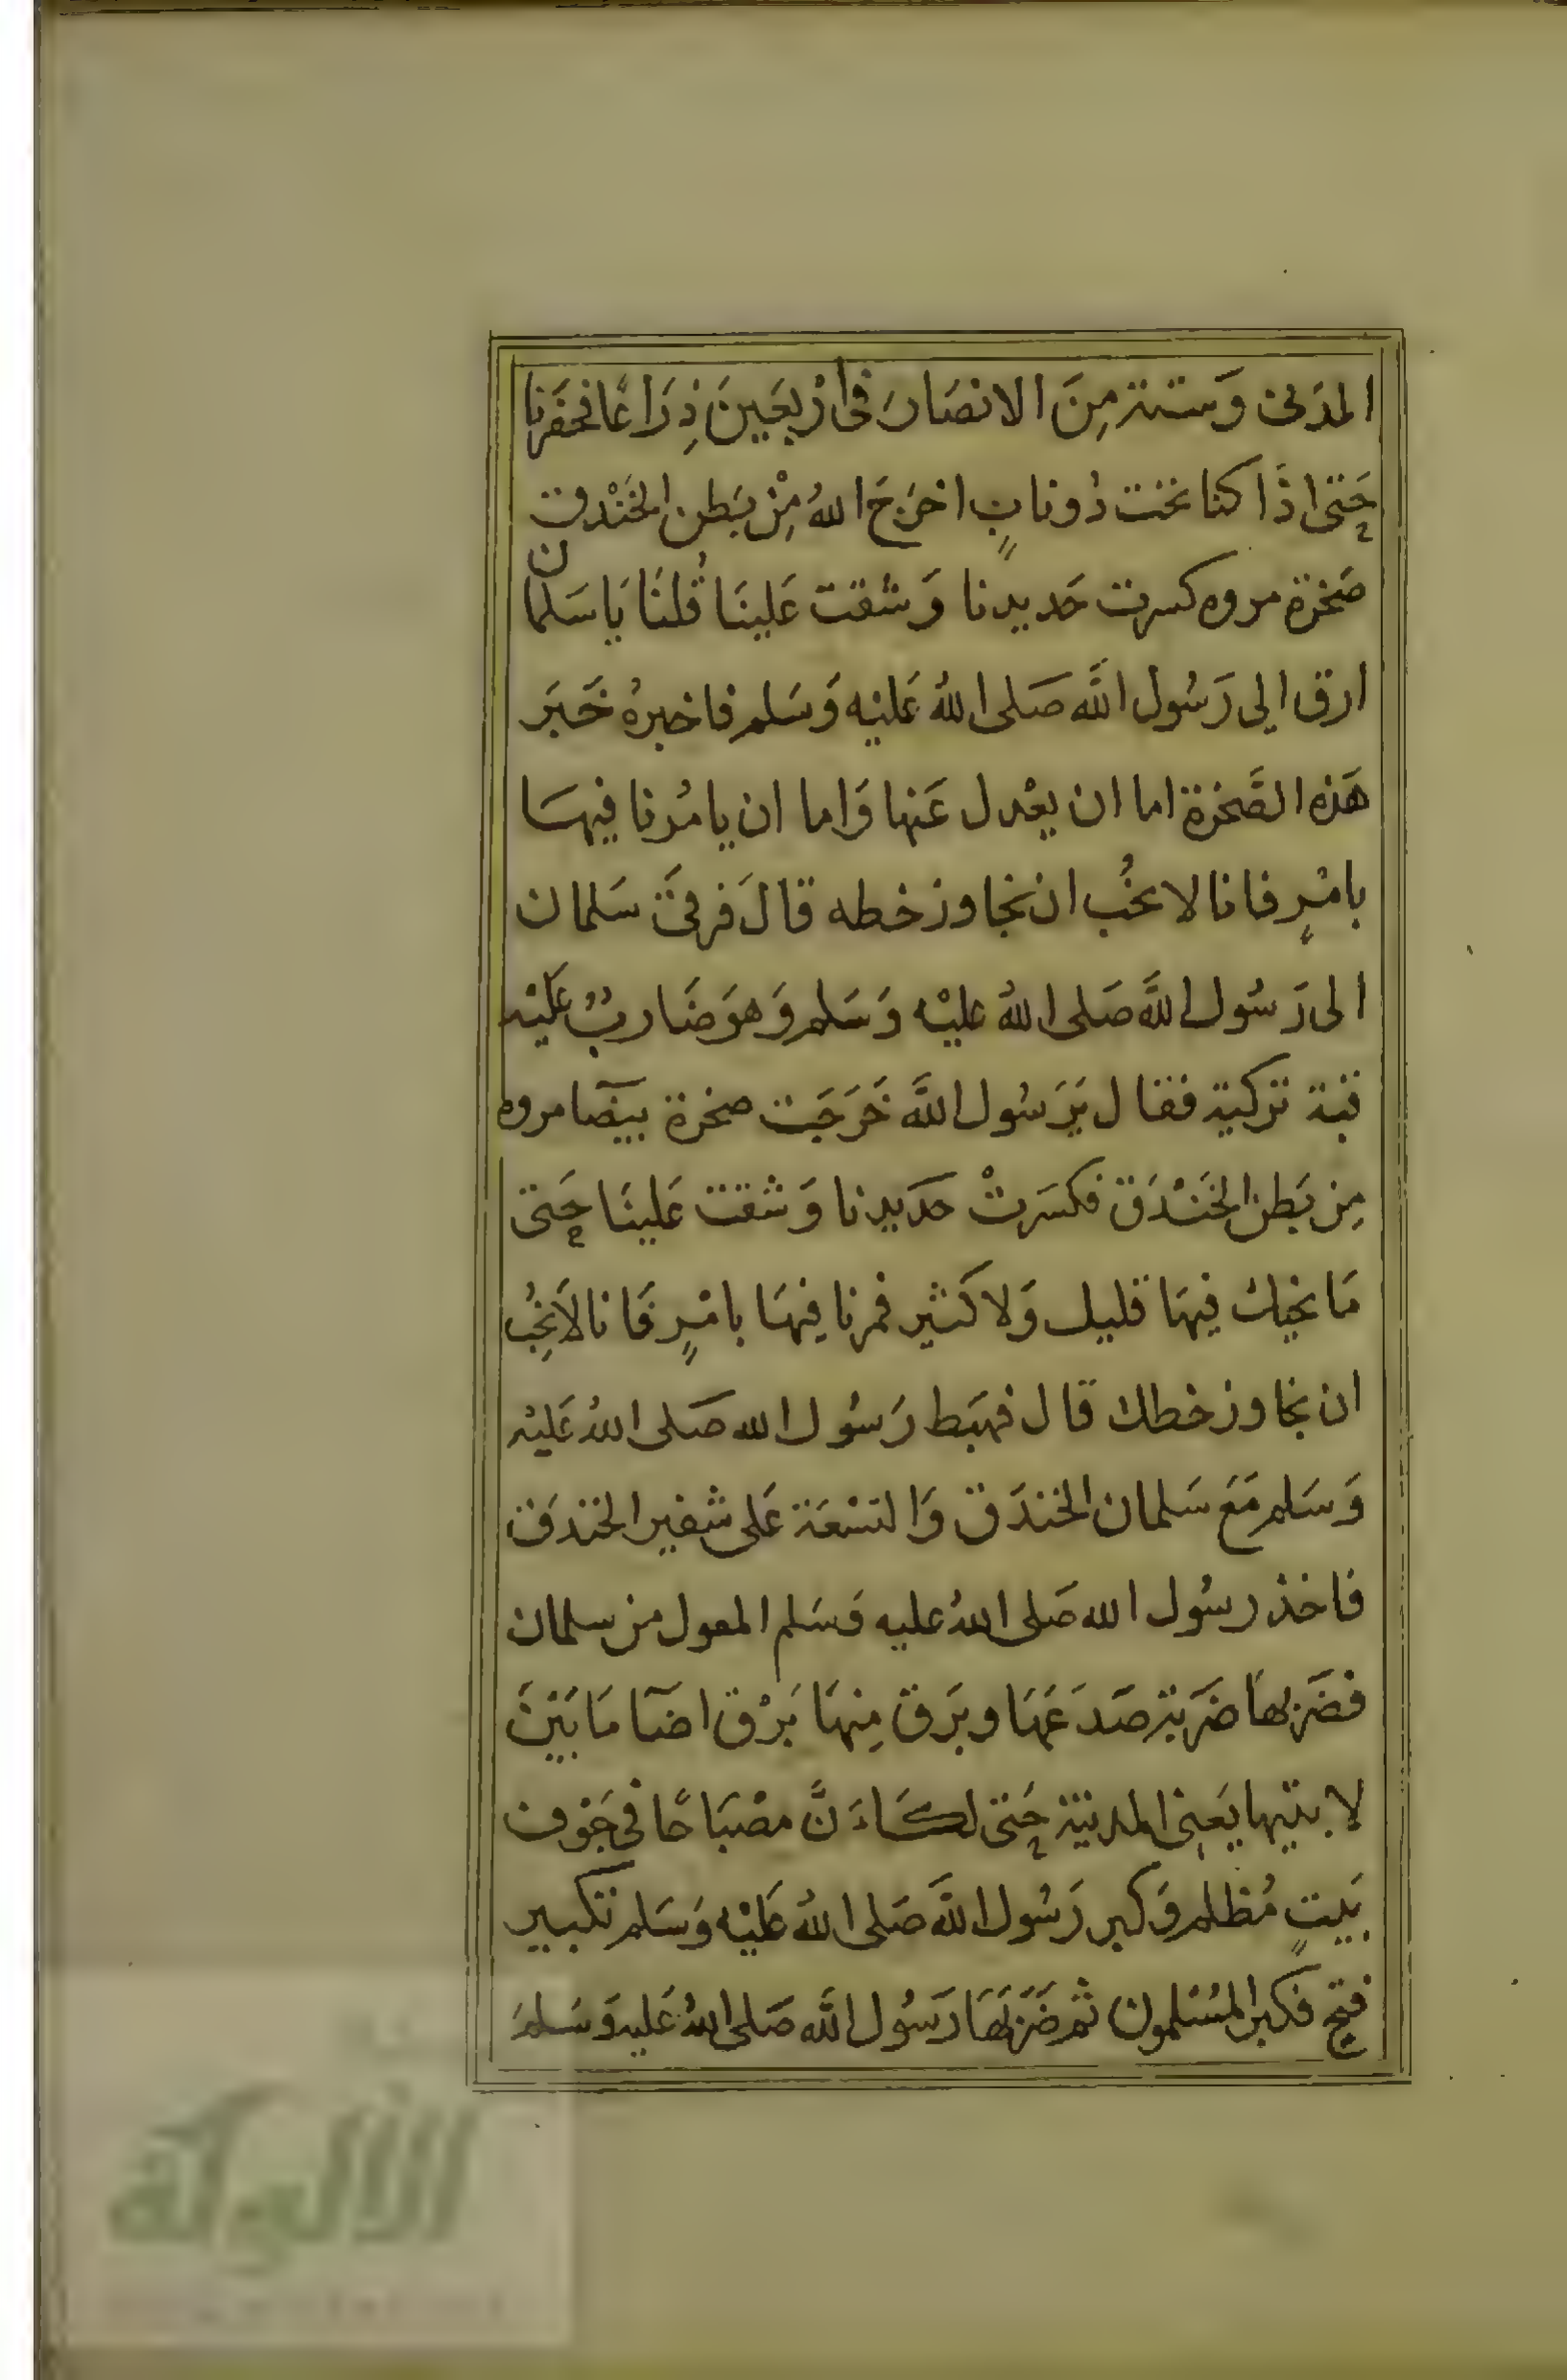 المدني وستة مِنَ الانصَار في ارْبعَينَ ذِرَاعًا فحفرنا
حَتى اذَا كنا تحت ذوناب اخرَج اللهُ مِنْ بَطن الخَنْدق
صَخرة مروه كسرت حَديدنا وَشقت عَلينَا قُلنَا يَا سَلمان
ارق الى رَسُول اللَّه صَلى اللهُ عَليْه وَسَلم فاخبرهُ خَبَر
هَذه الصَّخرة اما ان يعْدل عَنها وَاما ان يامُرنا فيهَا
بامْرٍ فانا لا نحُب ان نجاوز خطه قالَ فرقىَ سَلمان
الى رَسُول اللَّه صَلى اللهُ عليْه وَسَلم وَهوَ ضَاربٌ عَليْه
قبة تركية فقال يَرَسُول اللَّه خَرَجَت صخرة بيضَا مروه
مِن بَطن الخَنْدَق فكسَرتْ حدَيدنا وَشقت عَلينَا حَتى
مَا نحيك فيهَا قليل وَلا كَثير فمرنا فيهَا بامْرٍ فَانا لاَ نحُب
ان نجاوز خطك قال فهبَط رَسُول الله صَلى اللهُ عَليْه
وَسَلم مَعَ سَلمان الخندَق وَالتسْعَة عَلى شفير الخندَق
فاخذ رسُول الله صَلى اللهُ عليه وَسَلم المعول من سلمان
فضَربهَا ضَربة صَدَعَهَا وبرَق مِنهَا بَرْق اضَآ مَا بَيْنَ
لابتيها يَعنِى المدينة حَتى لكَاَنَّ مصْبَاحًا في جَوْف
بَيتٍ مُظلم وَكبر رَسُول اللَّه صَلى اللهُ عَليْه وَسَلم تكبير
فتحٍ فكبر المسْلمون ثم ضَرَبَهَا رَسُول اللَّه صَلى اللهُ عَليه وَسَلمَ
الألوكة